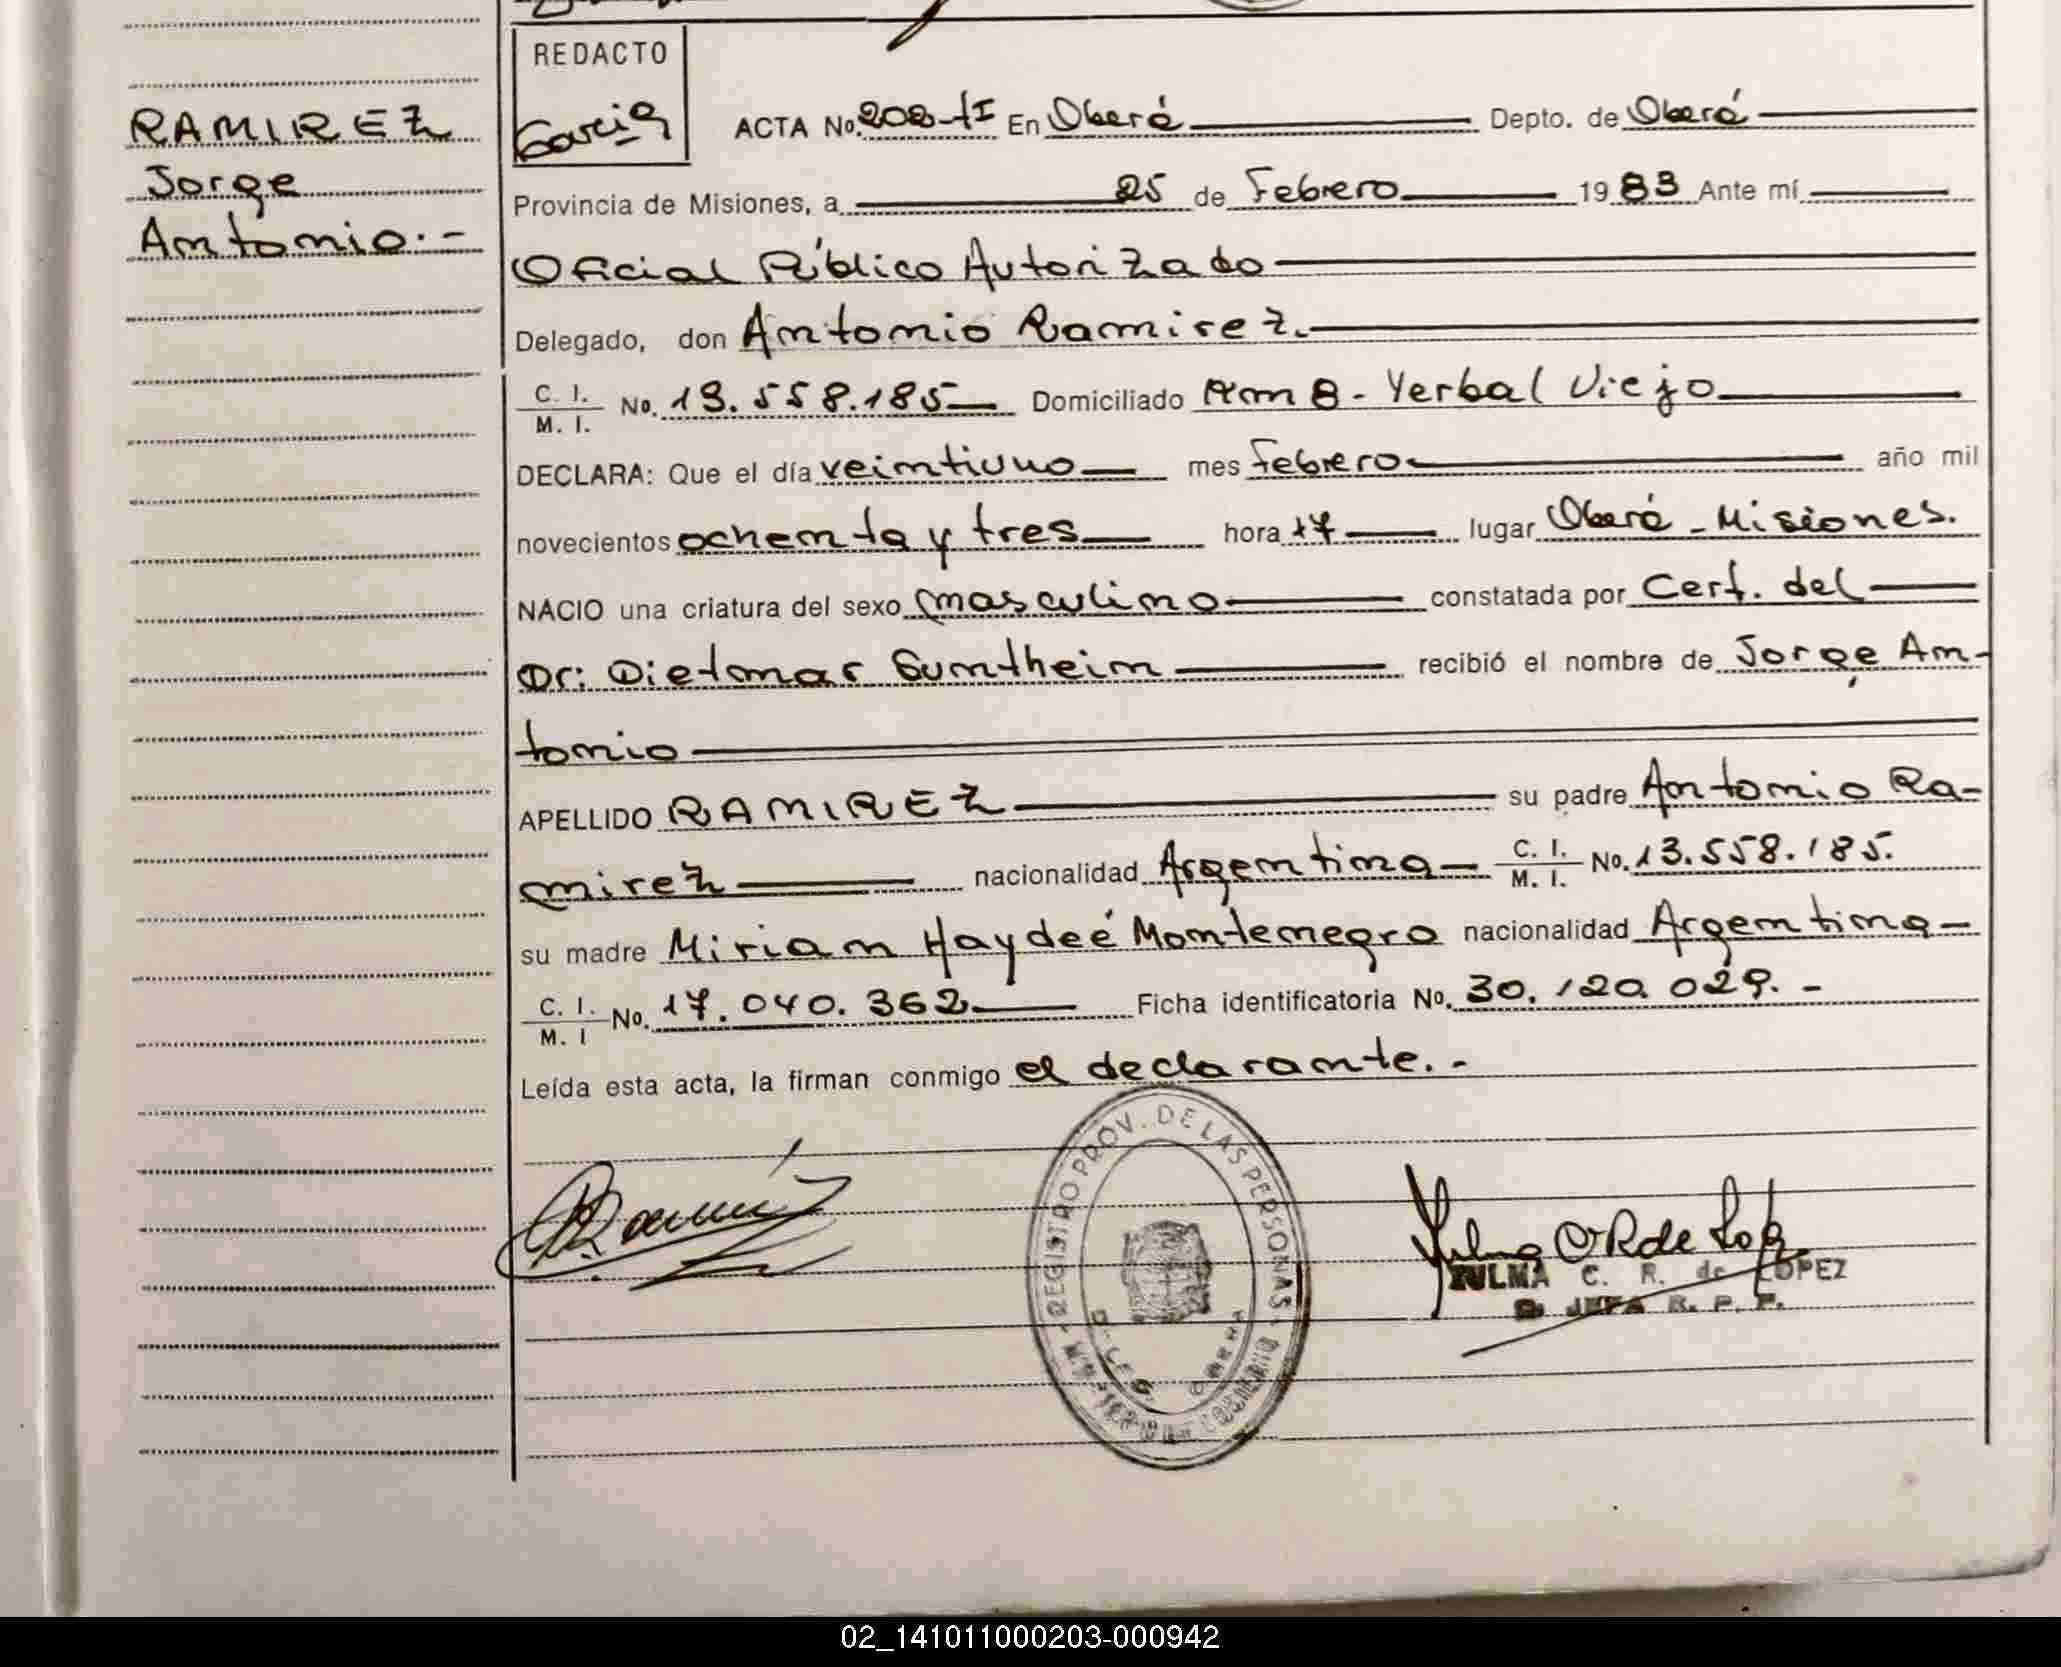 REDACTO
Garcia
RAMIREZ
Jorge
Antonio.-
ACTA No. 202-tI En Oberá Depto. de Oberá
Provincia de Misiones, a 25 de Febrero 1983 Ante mí
Oficial Público Autorizado
Delegado, don Antonio Ramirez.
C. I. / M. I. No. 13.558.185 Domiciliado Km 8 - Yerbal Viejo
DECLARA: Que el día veintiuno mes Febrero año mil
novecientos ochenta y tres hora 17 lugar Oberá - Misiones.
NACIO una criatura del sexo masculino constatada por Cert. del
Dr: Dietmar Suntheim recibió el nombre de Jorge An-
tonio
APELLIDO RAMIREZ su padre Antonio Ra-
mirez nacionalidad Argentina C. I. / M. I. No. 13.558.185.
su madre Miriam Haydeé Montenegro nacionalidad Argentina
C. I. / M. I No. 17.040.362 Ficha identificatoria No. 30.120.029.-
Leída esta acta, la firman conmigo el declarante.-
REGISTRO PROV. DE LAS PERSONAS
OBERA
ZULMA C. R. de LOPEZ
JEFA R. P. P.
02_141011000203-000942